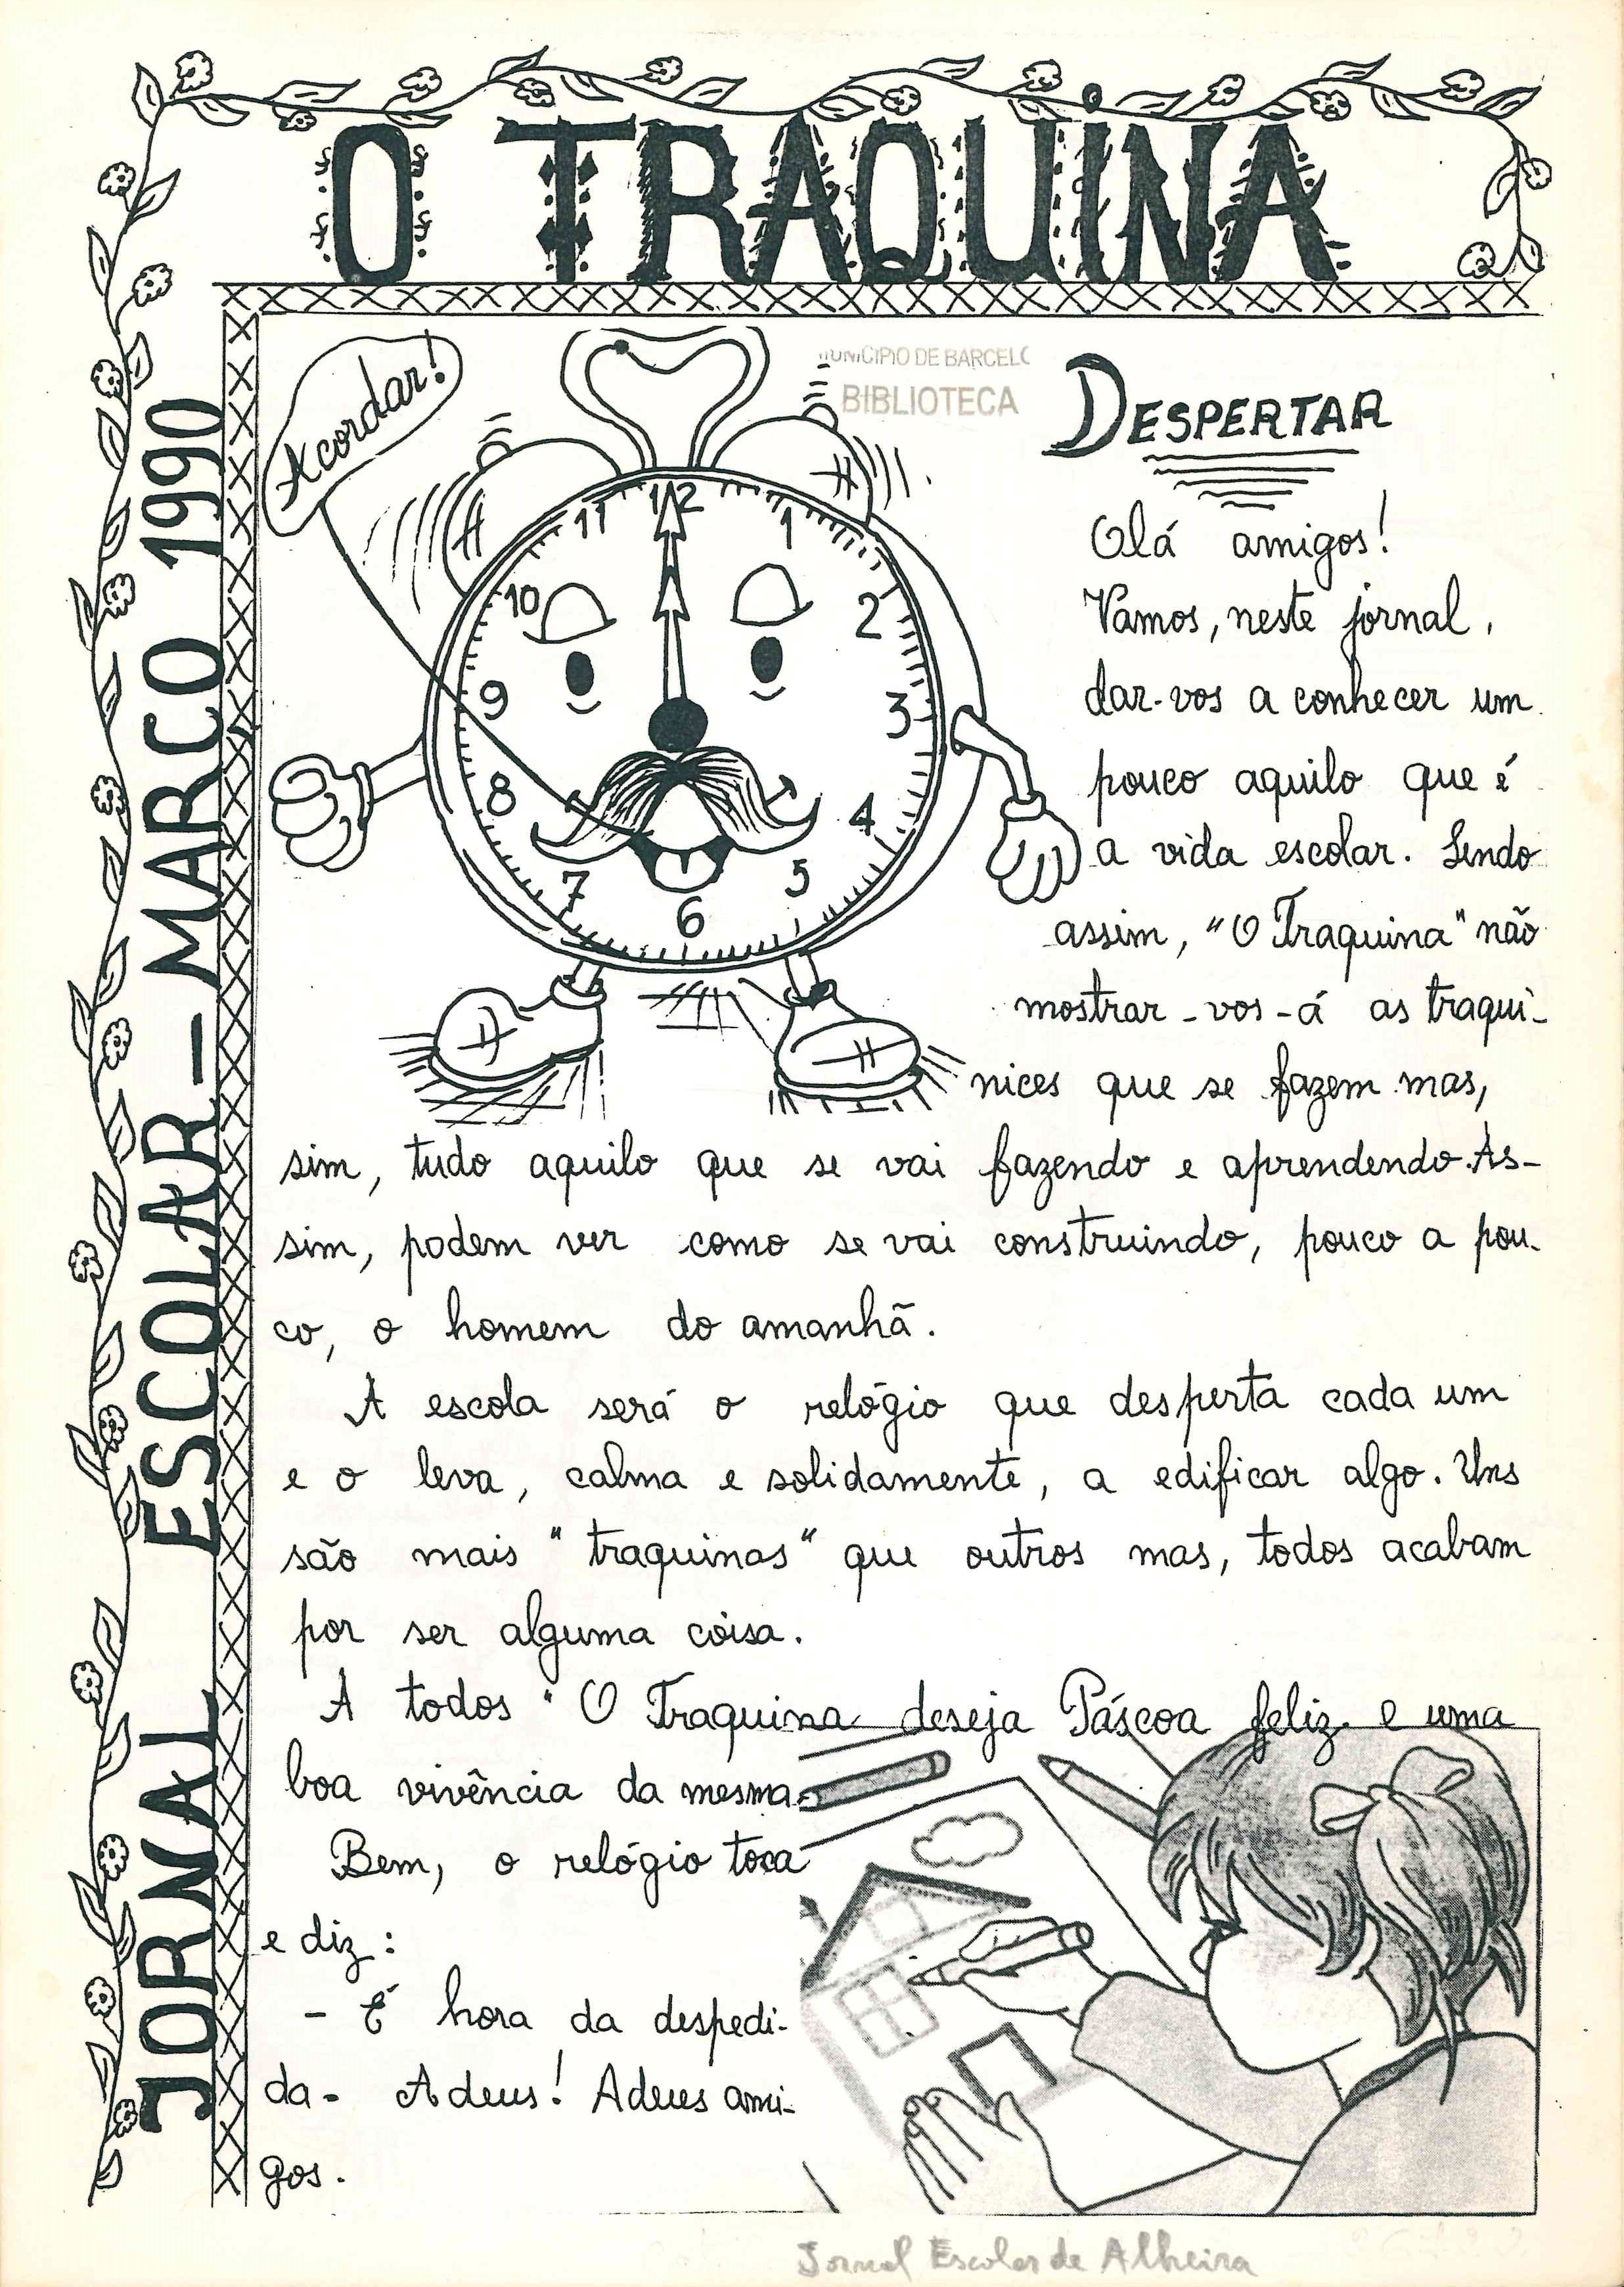 O TRAQUINA
JORNAL ESCOLAR - MARÇO 1990
Acordar!
MUNICIPIO DE BARCELO
BIBLIOTECA
11 12 1
10 2
9 3
8 4
7 6 5
DESPERTAR
Olá amigos!
Vamos, neste jornal,
dar-vos a conhecer um
pouco aquilo que é
a vida escolar. Sendo
assim, "O Traquina" não
mostrar-vos-á as traqui-
nices que se fazem mas,
sim, tudo aquilo que se vai fazendo e aprendendo. As-
sim, podem ver como se vai construindo, pouco a pou-
co, o homem do amanhã.
A escola será o relógio que desperta cada um
e o leva, calma e solidamente, a edificar algo. Uns
são mais "traquinas" que outros mas, todos acabam
por ser alguma coisa.
A todos "O Traquina deseja Páscoa feliz e uma
boa vivência da mesma.
Bem, o relógio toca
e diz:
- É hora da despedi-
da- Adeus! Adeus ami-
gos.
Jornal Escolar de Alheira